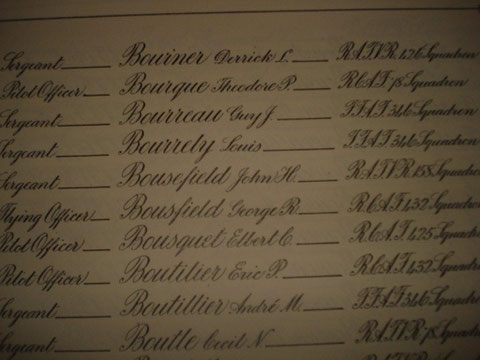 Sergeant Bouriner Derrick L. R.A.F.V.R. 426 Squadron
Pilot Officer Bourque Theodore P. R.C.A.F. 78 Squadron
Sergeant Bourreau Guy J. F.F.A.F. 346 Squadron
Sergeant Bourrely Louis F.F.A.F. 346 Squadron
Sergeant Bousefield John H. R.A.F.V.R. 158 Squadron
Flying Officer Bousfield George R. R.C.A.F. 432 Squadron
Pilot Officer Bousquet Elbert C. R.C.A.F. 425 Squadron
Pilot Officer Boutilier Eric P. R.C.A.F. 432 Squadron
Sergeant Boutillier André M. F.F.A.F. 346 Squadron
Sergeant Boutle Cecil N. R.A.F.V.R. 78 Squadron